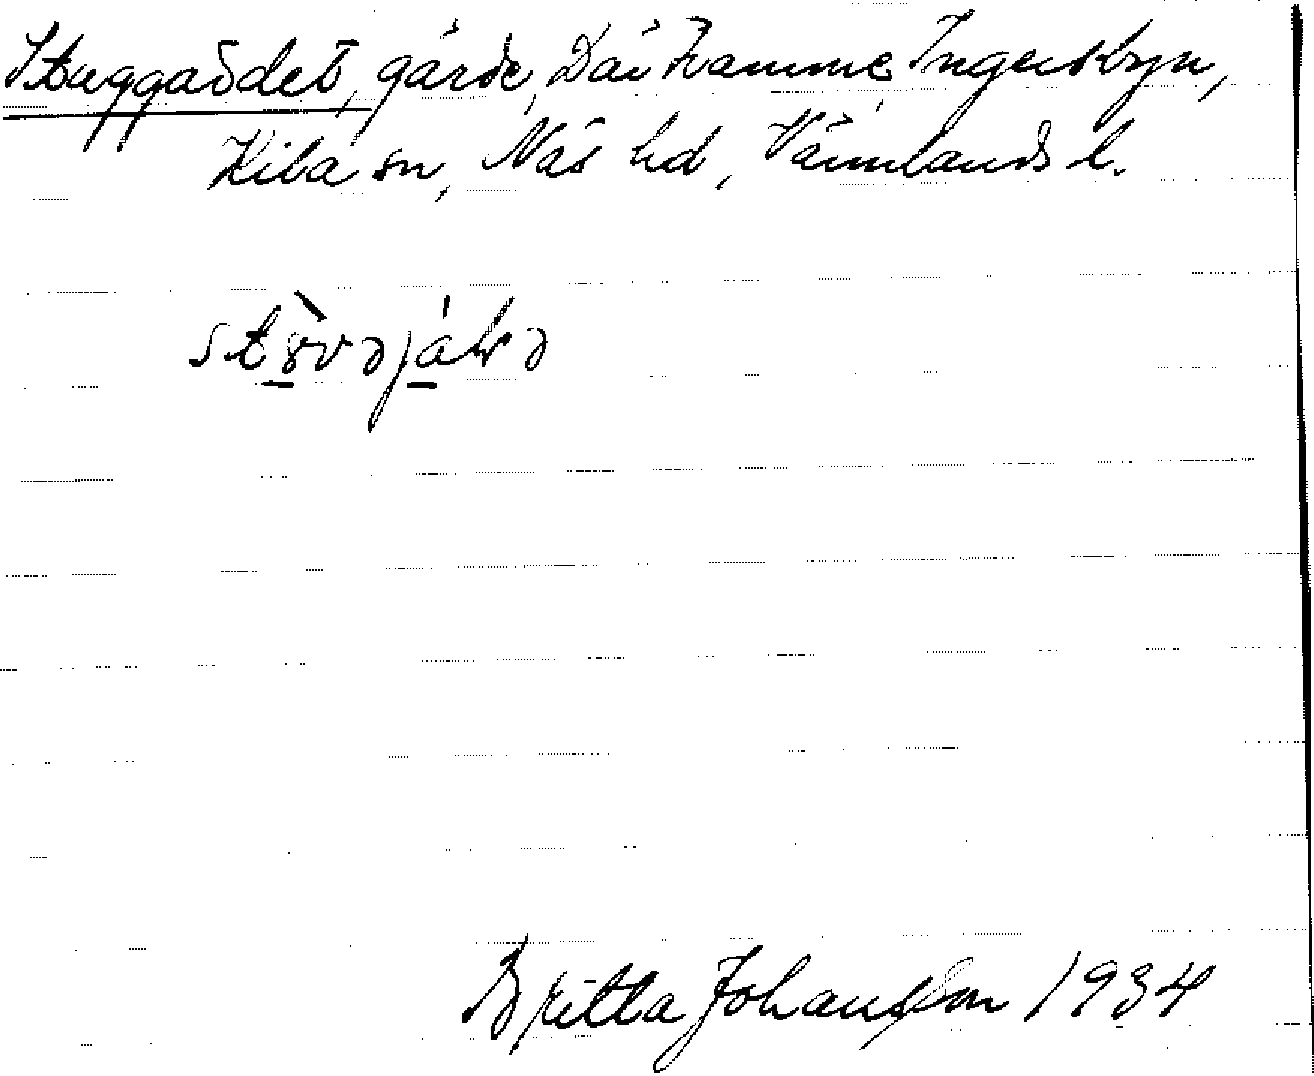 Stuggädet, gärde, Där hamme, Ingersbyn,
Kila sn, Näs hd, Värmlands l.
Britta Johansson 1934